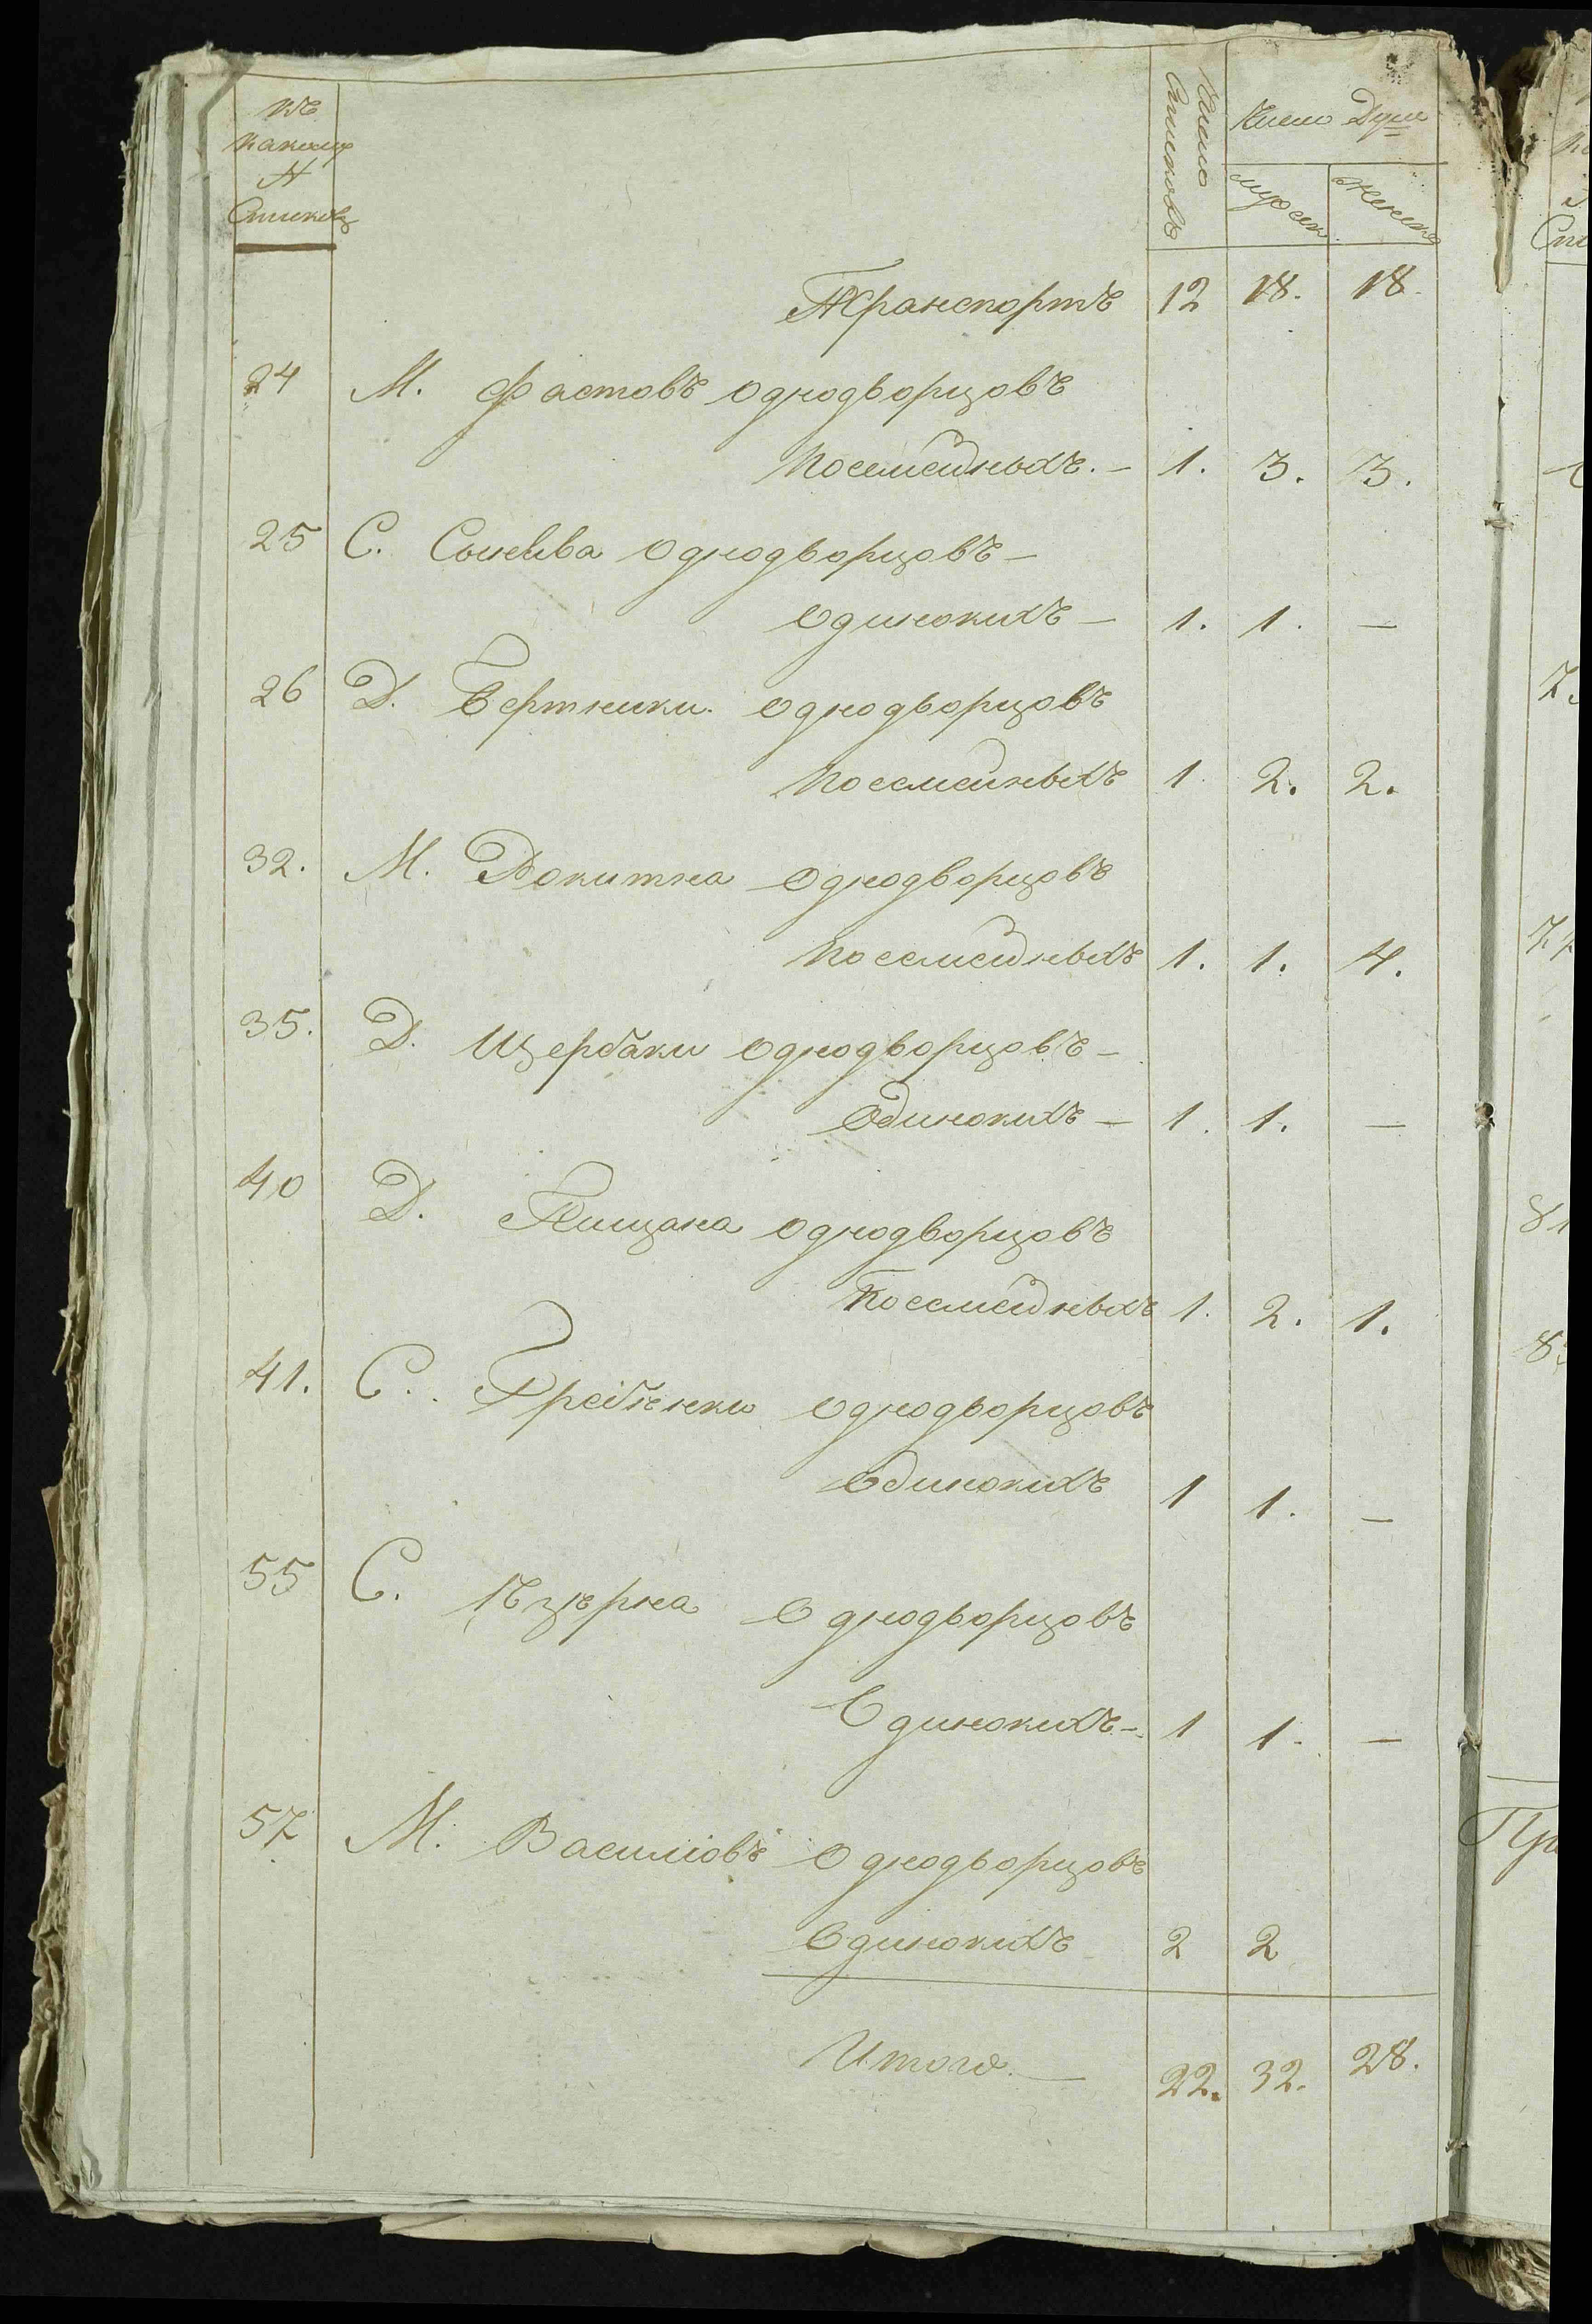 къ
какому
№
Списку
Число Списковъ
Число Душъ
мужеск.
женска
Транспортъ 12 18. 18.
24 М. Фастовъ однодворцовъ
Посемейныхъ. — 1. 3. 3.
25 С. однодворцовъ —
одинокихъ — 1. 1. —
26 Д. Вертники. однодворцовъ
Посемейныхъ 1 2. 2.
32. М. Рокитна однодворцовъ
Посемейныхъ 1. 1. 4.
35. Д. Щербаки однодворцовъ —
Одинокихъ — 1. 1. —
40 Д. Пищана однодворцовъ
Посемейныхъ 1. 2. 1.
41. С. Гребенки однодворцовъ
Одинокихъ 1 1. —
55 С. однодворцовъ
Одинокихъ — 1 1. —
57 М. Василковъ однодворцовъ
Одинокихъ 2 2
Итого. — 22. 32. 28.